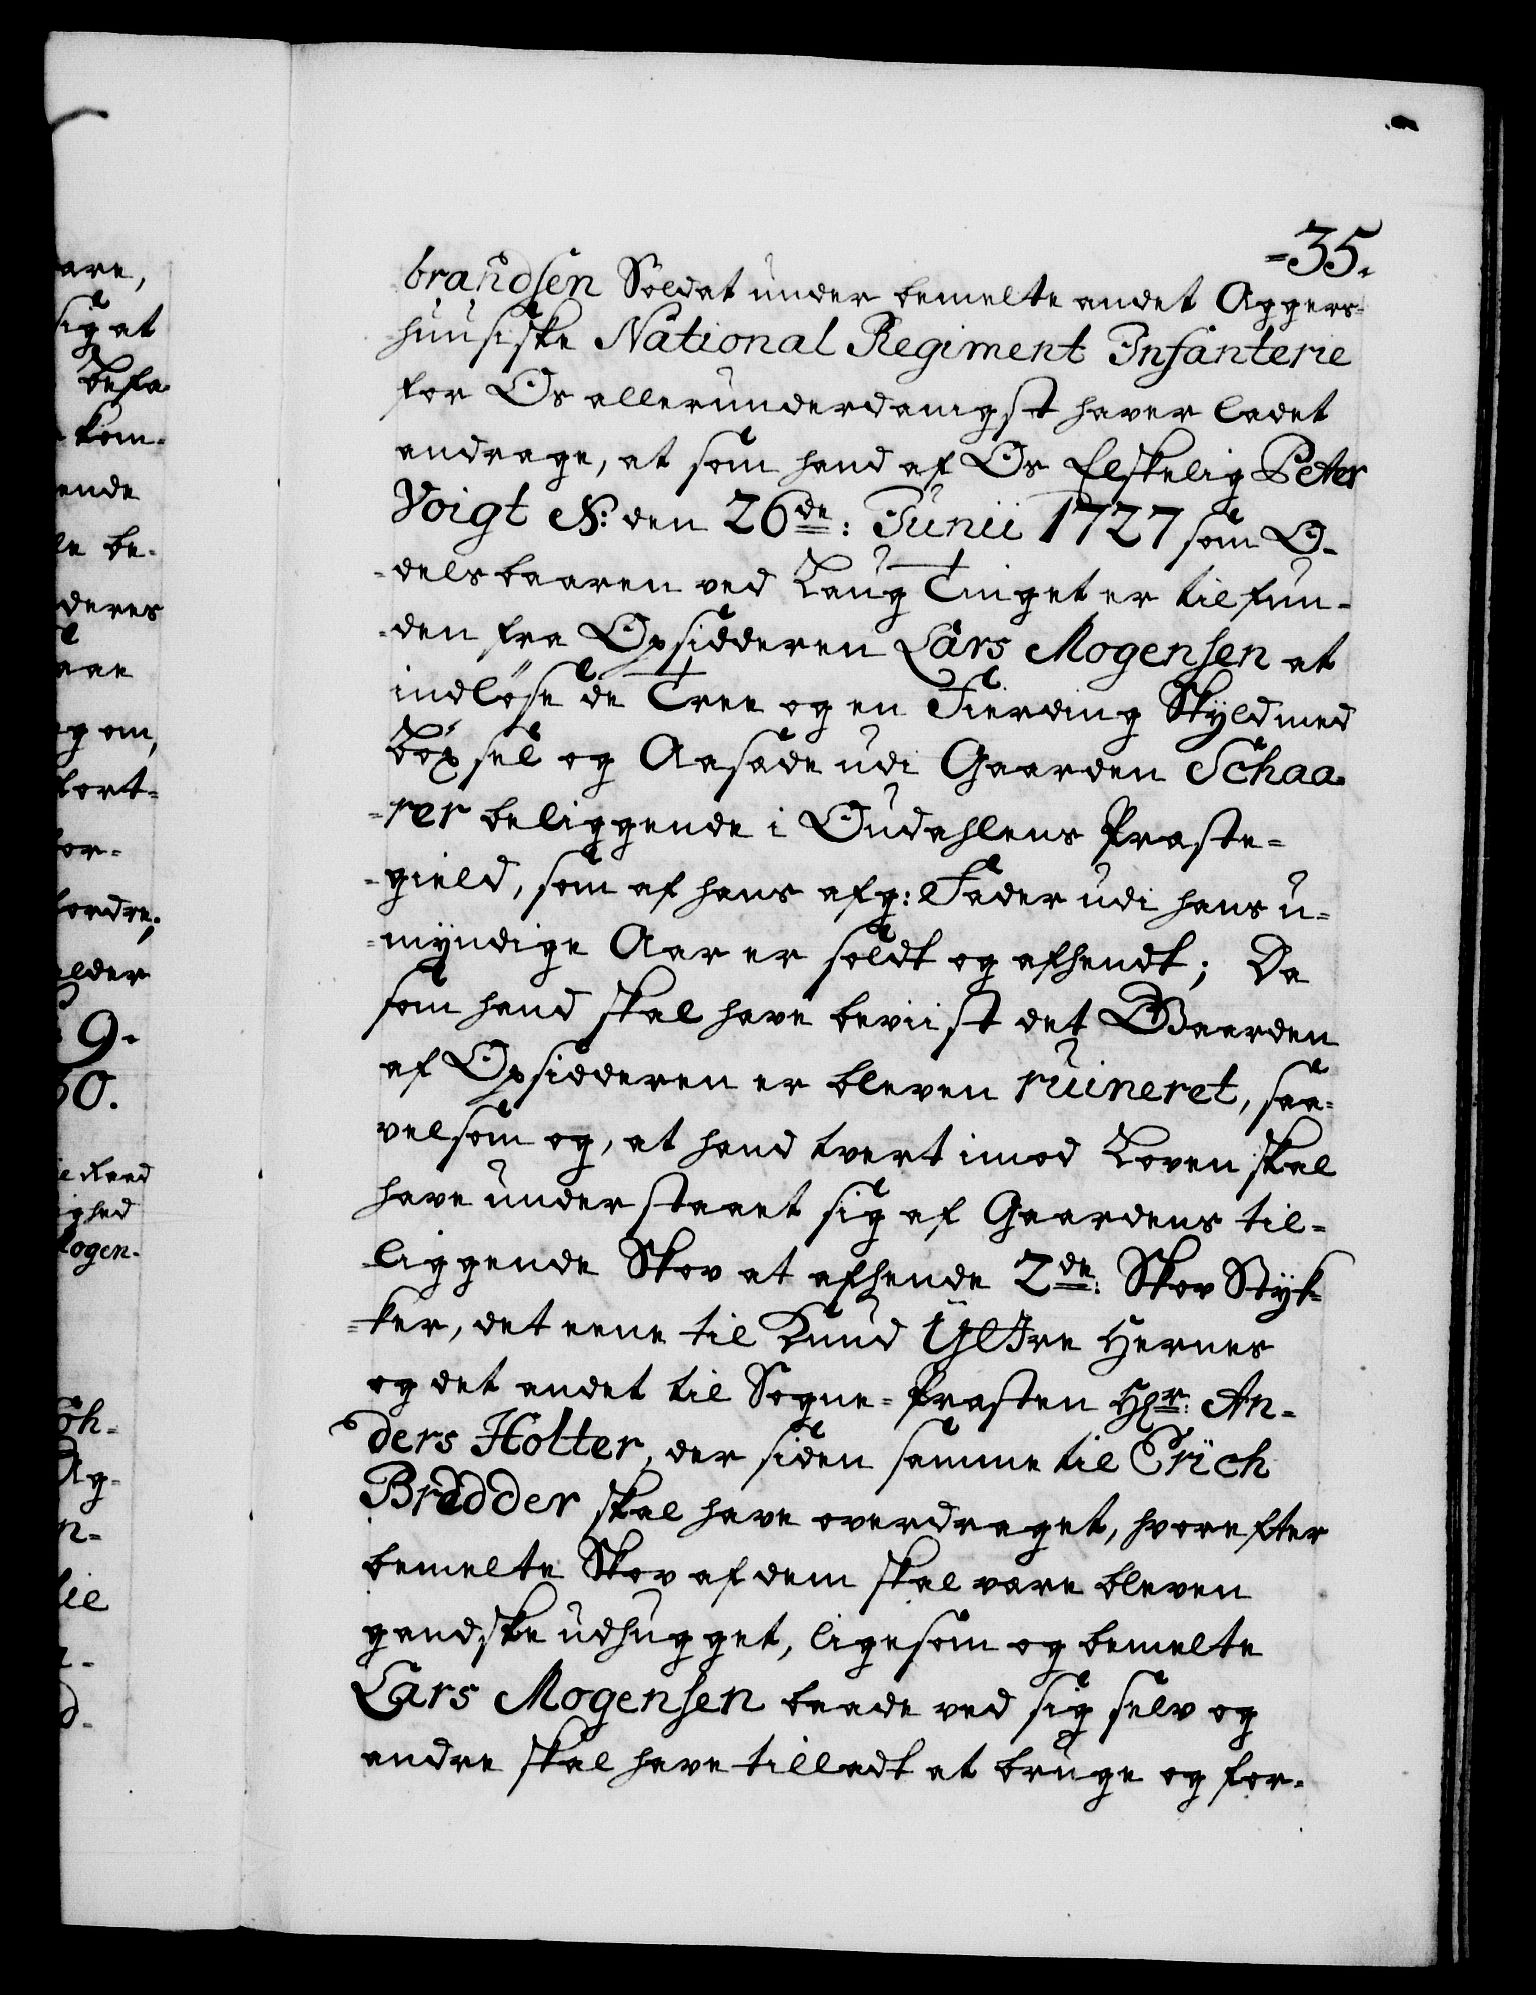 =35.
brandsen Soldat under bemelte andet Aggers-
huusiske National Regiment Infanterie
for Os allerunderdanigst haver ladet
andrage, at som hand af Os Elskelig Peter
Voigt N: den 26de: Junii 1727 som O-
-delsbaaren ved Laug Tinget er tilfun-
-den fra Opsidderen Lars Mogensen at
indløse de Tree og en Fierding Skyld med
Böxsel og Aasæde udi Gaarden Schaa-
-rer beliggende i Oudahlens Præste-
-gield, som af hans afg: Fader udi hans u-
-myndige Aar er soldt og afhendt; Da
som hand skal have beviist det Gaarden
af Opsidderen er bleven ruineret, saa-
velsom og, at hand tvert imod Loven skal
have understaaet sig af Gaardens til-
liggende Skov at afhende 2de: Skov Styk-
-ker, det eene til Knud Yttre Hernes
og det andet til Sogne-Præsten Hr: An-
ders Holter, der siden samme til Erich
Brædder skal have overdraget, hvorefter
bemelte Skov af dem skal være bleven
gandske udhugget, ligesom og bemelte
Lars Mogensen baade ved sig selv og
andre skal have tilladt at bruge og for-
are,
sig at
Befa-
kom-
ende
le be-
deres
aae
g om,
fort-
for-
fordre,
elder
9.
60.
ghed
Mogen-
Ag-
n-